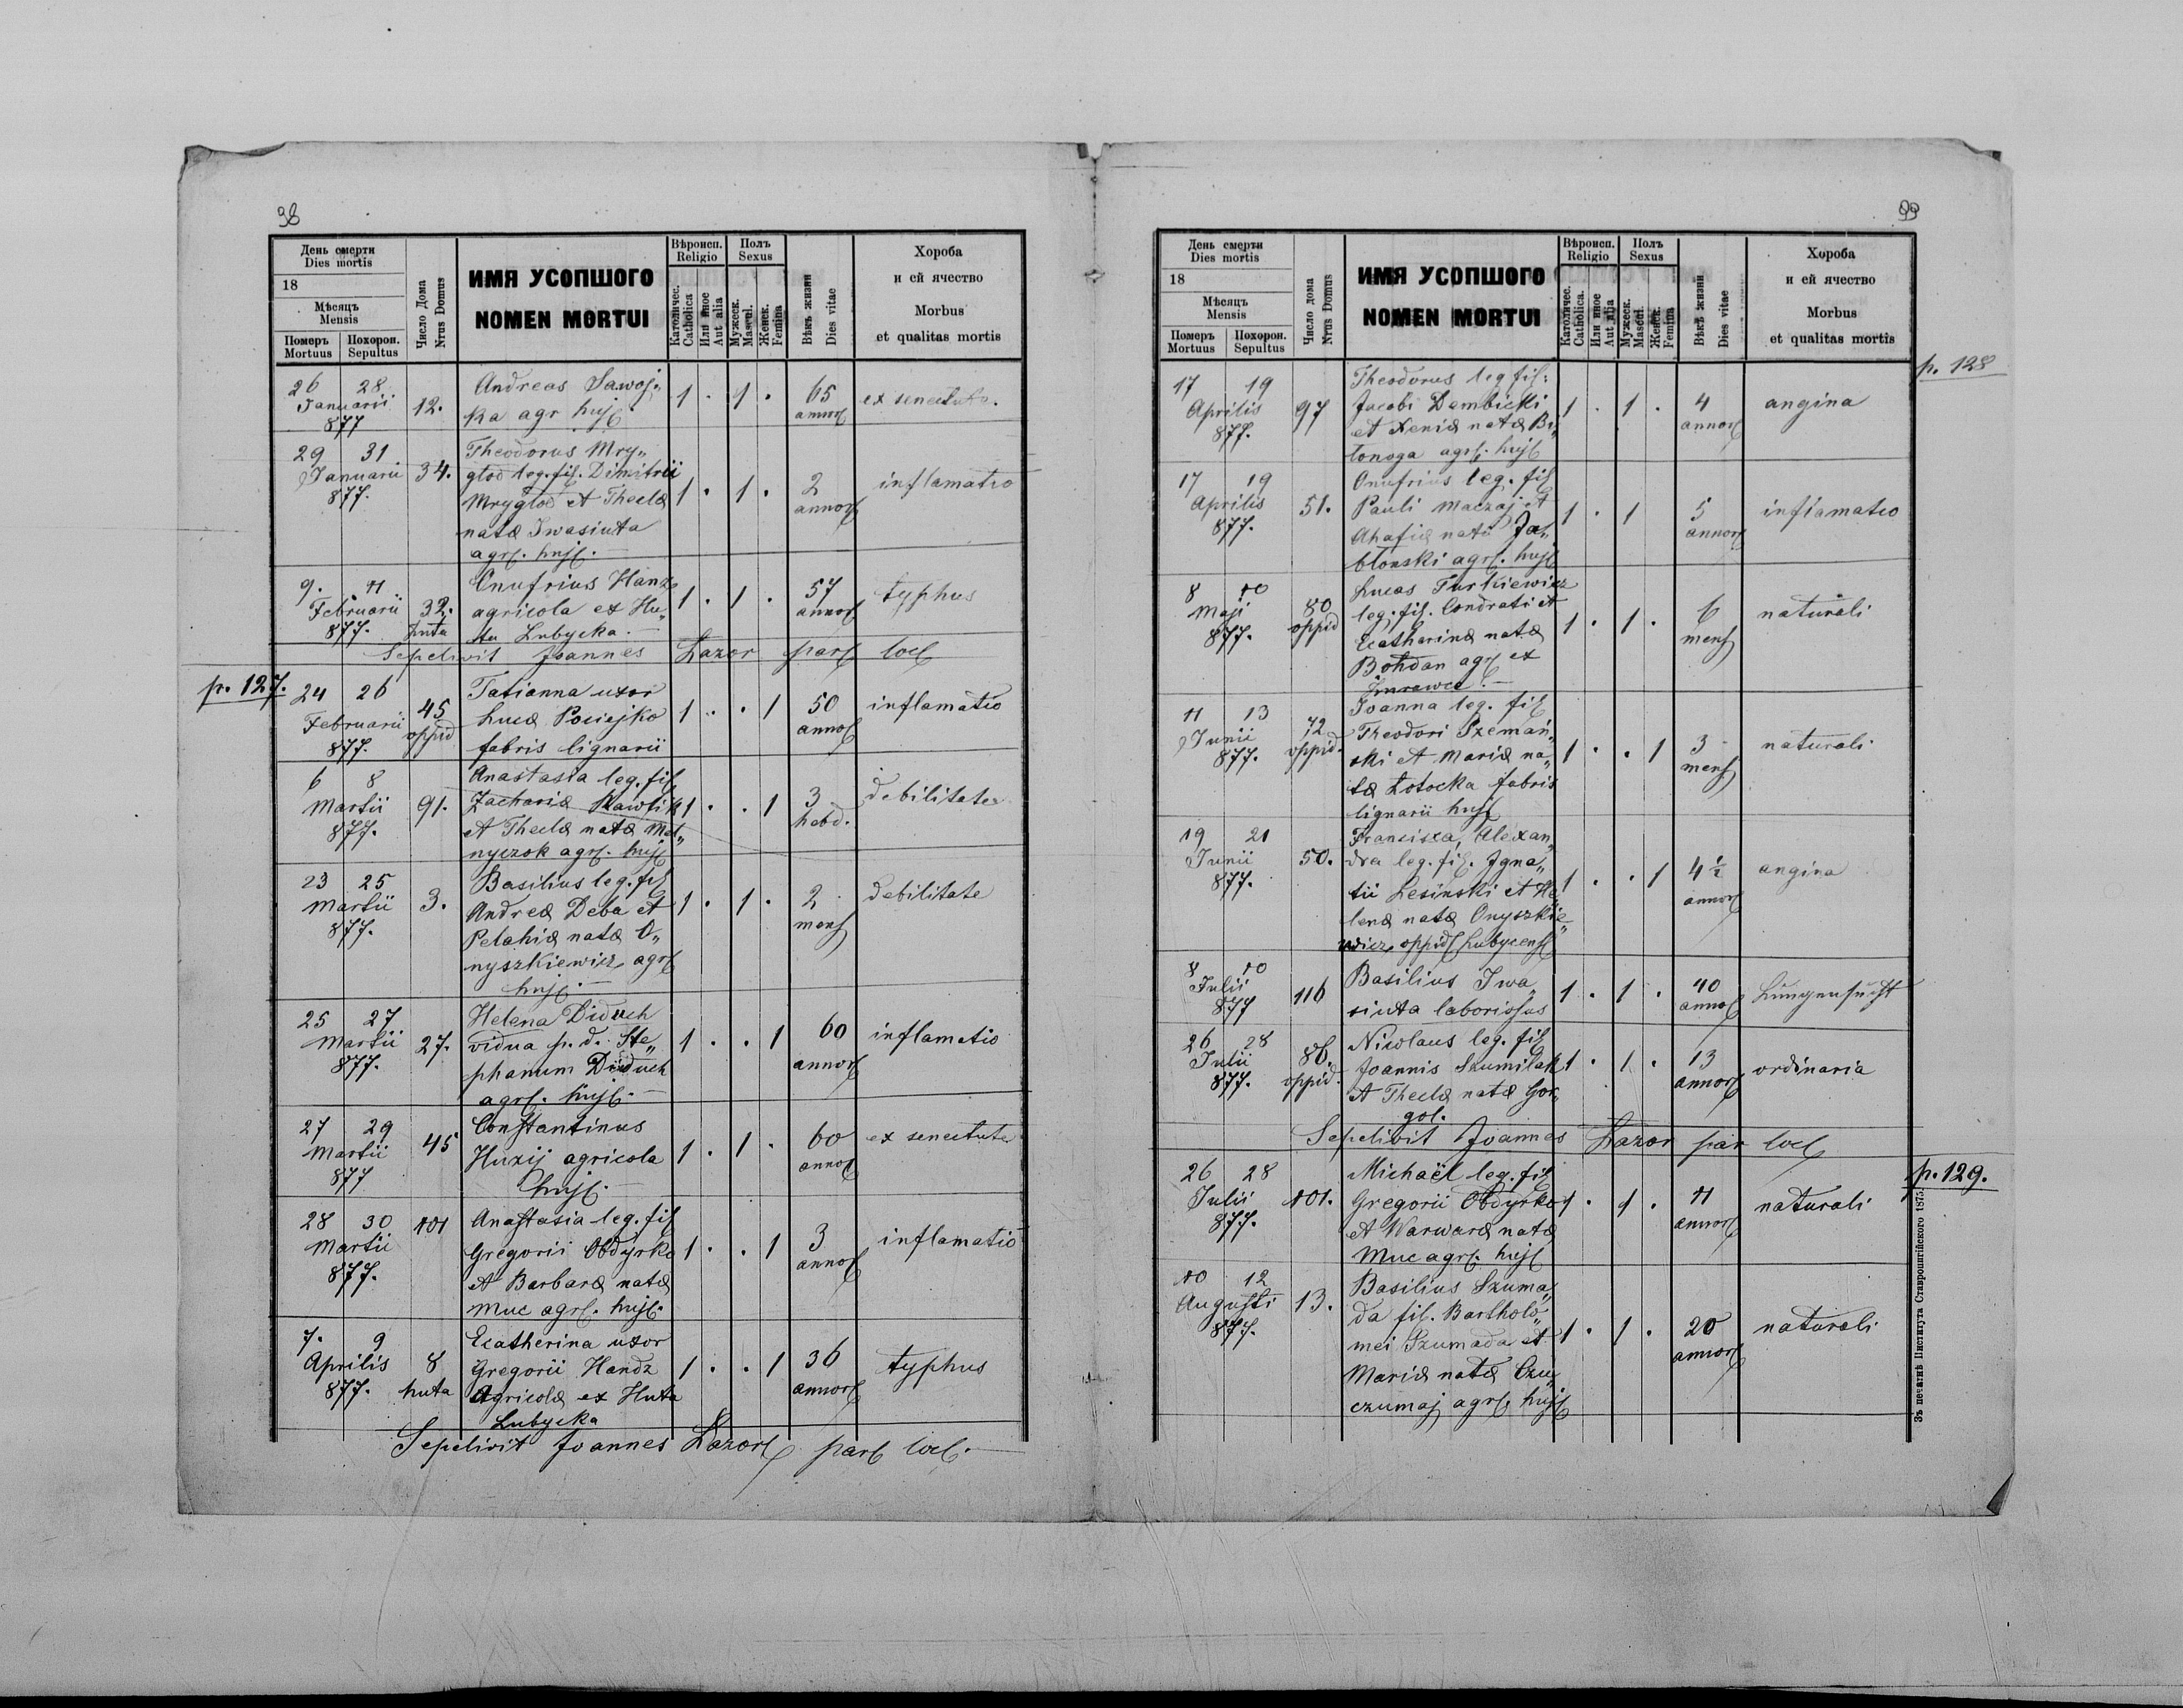 38
День смерти
Dies mortis
18
Мѣсяцъ
Mensis
Померъ Похорон.
Mortuus Sepultus
Число Дома
Nrus Domus
ИМЯ УСОПШОГО
NOMEN MORTUI
Вѣроисп.
Religio
Католичес.
Catholica
Или иное
Aut alia
Полъ
Sexus
Мужеск.
Mascul.
Женск.
Femina
Вѣкъ жизни
Dies vitae
Хороба
и ей ячество
Morbus
et qualitas mortis
26 28
Januarii
877
12.
Andreas Sawoj„
ka agr huj.
1 . 1 .
65
annor
ex senectute.
29 31
Januarii
877.
34.
Theodorus Mry„
glod leg. fil. Dimitrii
Mryglod et Theclæ
natæ Iwasiuta
agr. huj.
1 . 1 .
2
annor
inflamatio
9. 11
Februarii
877.
32.
huta
Onufrius Hanz
agricola ex Hu„
ta Lubycka.
1 . 1 .
57
annor
typhus
Sepelivit Joannes Lazor par loc
p. 127.
24 26
Februarii
877.
45
oppid
Tatianna uxor
Lucæ Posiejko
fabris lignarii
1 . . 1
50
annor
inflamatio
6 8
Martii
877.
91.
Anastasia leg. fil
Zachariæ Kawlik
et Theclæ natæ Mel„
nyczok agr. huj
1 . . 1
3
hebd.
debilitate
23 25
Martii
877.
3.
Basilius leg. fil
Andreæ Deba et
Pelahiæ natæ O„
nyszkiewicz agr
huj.
1 . 1 .
2
mens
debilitate
25 27
Martii
877.
27.
Helena Diduch
vidua p. d. Ste„
phanum Diduch
agr. huj.
1 . . 1
60
annor
inflamatio
27 29
Martii
877
45
Constantinus
Huzij agricola
huj.
1 . 1 .
60
annor
ex senectute
28 30
Martii
877.
101
Anastasia leg. fil
Gregorii Obdyrko
et Barbaræ natæ
Muc agr. huj.
1 . . 1
3
annor
inflamatio
7. 9
Aprilis
877.
8
huta
Ecatherina uxor
Gregorii Handz
Agricolæ ex Huta
Lubycka
1 . . 1
36
annor
typhus
Sepelivit Joannes Lazor par loc.
99
День смерти
Dies mortis
18
Мѣсяцъ
Mensis
Померъ Похорон.
Mortuus Sepultus
Число дома
Nrus Domus
ИМЯ УСОПШОГО
NOMEN MORTUI
Вѣроисп.
Religio
Католичес.
Catholica.
Или иное
Aut alia
Полъ
Sexus
Мужеск.
Mascul.
Женск.
Femina
Вѣкъ жизни
Dies vitae
Хороба
и ей ячество
Morbus
et qualitas mortis
p. 128
17 19
Aprilis
877.
97
Theodorus leg fil:
Jacobi Dembicki
et Xeniæ natæ Bi„
tonoga agr. huj
1 . 1 .
4
annor
angina
17 19
Aprilis
877.
51.
Onufrius leg. fil
Pauli Maczaj et
Ahafiæ natæ Ja„
blonski agr. huj
1 . 1
5
annor
inflamatio
8 10
Maji
877.
80
oppid
Lucas Turkiewicz
leg. fil. Condrati et
Ecatharinæ natæ
Bohdan agr ex
1 . 1 .
6
mens
naturali
11 13
Junii
877.
72
oppid.
Joanna leg. fil
Theodori Szemań„
ski et Mariæ na„
tæ Lotocka fabris
lignarii huj
1 . . 1
3
mens
naturali
19 21
Junii
877.
50.
Francisca, Alexan„
dra leg. fil. Igna„
tii Lesinski et He„
lenæ natæ Onyszkie„
wicz oppid Lubycens
1 . . 1
4 ½
annor
angina
8 10
Julii
877
116
Basilius Iwa„
siuta laboriosus
1 . 1 .
40
annor
Lungensucht
26 28
Julii
877.
86.
oppid.
Nicolaus leg. fil
Joannis Szumilak
et Theclæ natæ Gor„
gol.
1 . 1 .
13
annor
ordinaria
Sepelivit Joannes Lazor par loc
p. 129.
26 28
Julii
877.
101.
Michaël leg. fil
Gregorii Obdyrko
et Warwaræ natæ
Muc agr. huj
1 . 1 .
11
annor
naturali
10 12
Augusti
877.
13.
Basilius Szuma„
da fil. Bartholo„
mei Szumada et
Mariæ natæ Czu„
czumaj agr. huj
1 . 1 .
20
annor
naturali
Зъ печатнѣ Института Ставропигійского 1875.